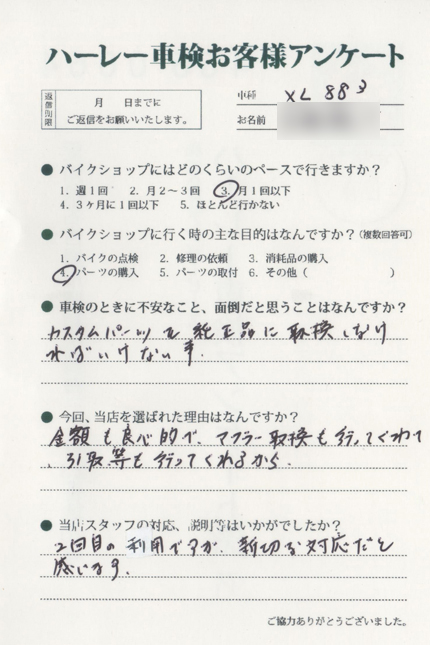 ハーレー車検お客様アンケート
返信期限
月　日までに
ご返信をお願いいたします。
車種 XL 883
お名前
● バイクショップにはどのくらいのペースで行きますか？
1. 週1回 2. 月2～3回 3. 月1回以下
4. 3ヶ月に1回以下 5. ほとんど行かない
● バイクショップに行く時の主な目的はなんですか？(複数回答可)
1. バイクの点検 2. 修理の依頼 3. 消耗品の購入
4. パーツの購入 5. パーツの取付 6. その他（　　　）
● 車検のときに不安なこと、面倒だと思うことはなんですか？
カスタムパーツを純正品に取換しなけ
ればいけない事.
● 今回、当店を選ばれた理由はなんですか？
金額も良心的で、マフラー取換も行ってくれて
、引取等も行ってくれるから.
● 当店スタッフの対応、説明等はいかがでしたか？
2回目の利用ですが、新切な対応だと
感じます.
ご協力ありがとうございました。